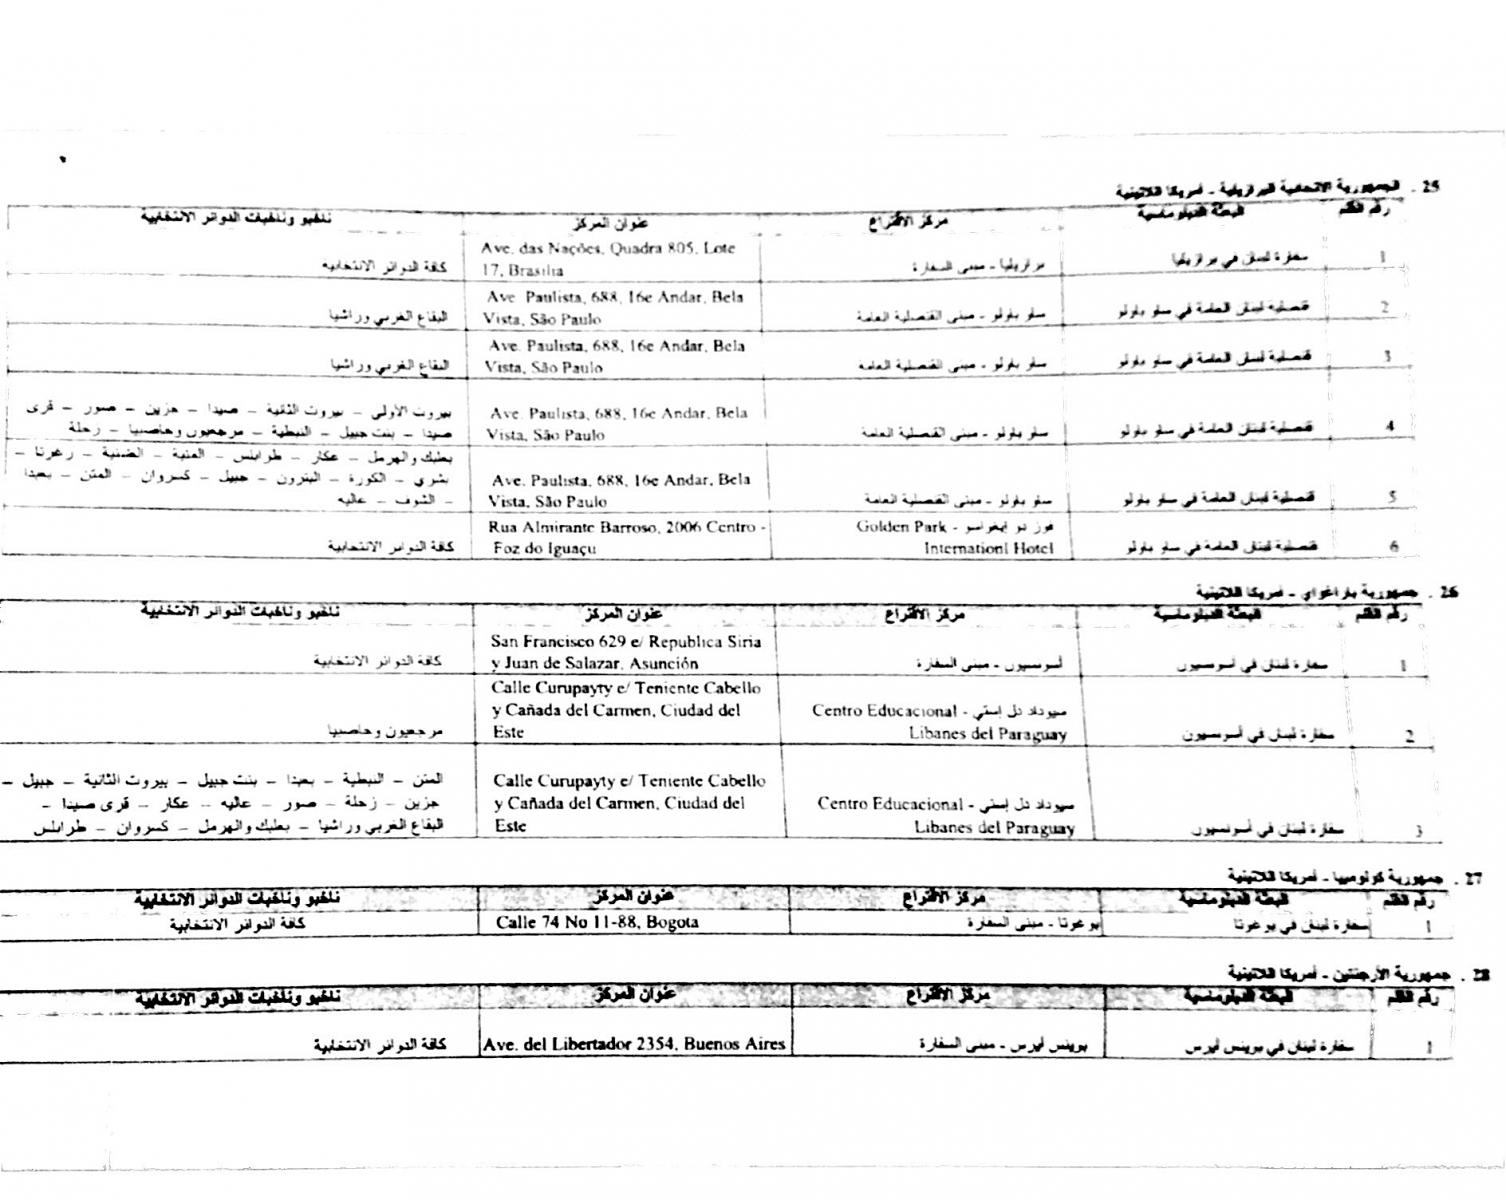 25 . الجمهورية الاتحادية البرازيلية - أمريكا اللاتينية
رقم القلم البعثة الدبلوماسية مركز الاقتراع عنوان المركز ناخبو وناخبات الدوائر الانتخابية
1 سفارة لبنان في برازيليا برازيليا - مبنى السفارة Ave. das Nações, Quadra 805, Lote
17, Brasilia كافة الدوائر الانتخابية
2 قنصلية لبنان العامة في ساو باولو ساو باولو - مبنى القنصلية العامة Ave. Paulista, 688, 16e Andar, Bela
Vista, São Paulo البقاع الغربي وراشيا
3 قنصلية لبنان العامة في ساو باولو ساو باولو - مبنى القنصلية العامة Ave. Paulista, 688, 16e Andar, Bela
Vista, São Paulo البقاع الغربي وراشيا
4 قنصلية لبنان العامة في ساو باولو ساو باولو - مبنى القنصلية العامة Ave. Paulista, 688, 16e Andar, Bela
Vista, São Paulo
بيروت الأولى - بيروت الثانية - صيدا - جزين - صور - قرى
صيدا - بنت جبيل - النبطية - مرجعيون وحاصبيا - زحلة
5 قنصلية لبنان العامة في ساو باولو ساو باولو - مبنى القنصلية العامة Ave. Paulista, 688, 16e Andar, Bela
Vista, São Paulo
بعلبك والهرمل - عكار - طرابلس - المنية - الضنية - زغرتا -
بشري - الكورة - البترون - جبيل - كسروان - المتن - بعبدا
- الشوف - عاليه
6 قنصلية لبنان العامة في ساو باولو فوز دو إيغواسو - Golden Park
Internationl Hotel
Rua Almirante Barroso, 2006 Centro -
Foz do Iguaçu كافة الدوائر الانتخابية
26 . جمهورية باراغواي - أمريكا اللاتينية
رقم القلم البعثة الدبلوماسية مركز الاقتراع عنوان المركز ناخبو وناخبات الدوائر الانتخابية
1 سفارة لبنان في أسونسيون أسونسيون - مبنى السفارة San Francisco 629 e/ Republica Siria
y Juan de Salazar, Asunción كافة الدوائر الانتخابية
2 سفارة لبنان في أسونسيون سيوداد دل إستي - Centro Educacional
Libanes del Paraguay
Calle Curupayty e/ Teniente Cabello
y Cañada del Carmen, Ciudad del
Este مرجعيون وحاصبيا
3 سفارة لبنان في أسونسيون سيوداد دل إستي - Centro Educacional
Libanes del Paraguay
Calle Curupayty e/ Teniente Cabello
y Cañada del Carmen, Ciudad del
Este
المتن - النبطية - بعبدا - بنت جبيل - بيروت الثانية - جبيل -
جزين - زحلة - صور - عاليه - عكار - قرى صيدا -
البقاع الغربي وراشيا - بعلبك والهرمل - كسروان - طرابلس
27 . جمهورية كولومبيا - أمريكا اللاتينية
رقم القلم البعثة الدبلوماسية مركز الاقتراع عنوان المركز ناخبو وناخبات الدوائر الانتخابية
1 سفارة لبنان في بوغوتا بوغوتا - مبنى السفارة Calle 74 No 11-88, Bogota كافة الدوائر الانتخابية
28 . جمهورية الأرجنتين - أمريكا اللاتينية
رقم القلم البعثة الدبلوماسية مركز الاقتراع عنوان المركز ناخبو وناخبات الدوائر الانتخابية
1 سفارة لبنان في بوينس أيرس بوينس أيرس - مبنى السفارة Ave. del Libertador 2354, Buenos Aires كافة الدوائر الانتخابية